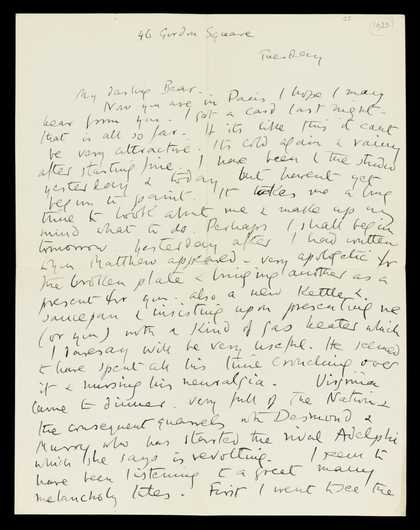 [1923]
46 Gordon Square
Tuesday
My darling Bear -
Now you are in Paris I hope I may
hear from you. I got a card last night -
that is all so far. If its like this it cant
be very attractive. Its cold again & rainy
after starting fine. I have been to the studio
yesterday & today but havent yet
begun to paint. It takes me a long
time to look about me & make up my
mind what to do. Perhaps I shall begin
tomorrow. Yesterday after I had written
to you Matthew appeared - very apologetic for
the broken plate & bringing another as a
present for you - also a new kettle &
saucepan & insisting upon presenting me
(or you) with a kind of gas heater which
I daresay will be very useful. He seemed
to have spent all his time crouching over
it & nursing his neuralgia. Virginia
came to dinner. Very full of the Nation &
the consequent quarrels with Desmond &
Murry who has started the rival Adelphi
which she says is revolting. I seem to
have been listening to a great many
melancholy tales. First I went to see the